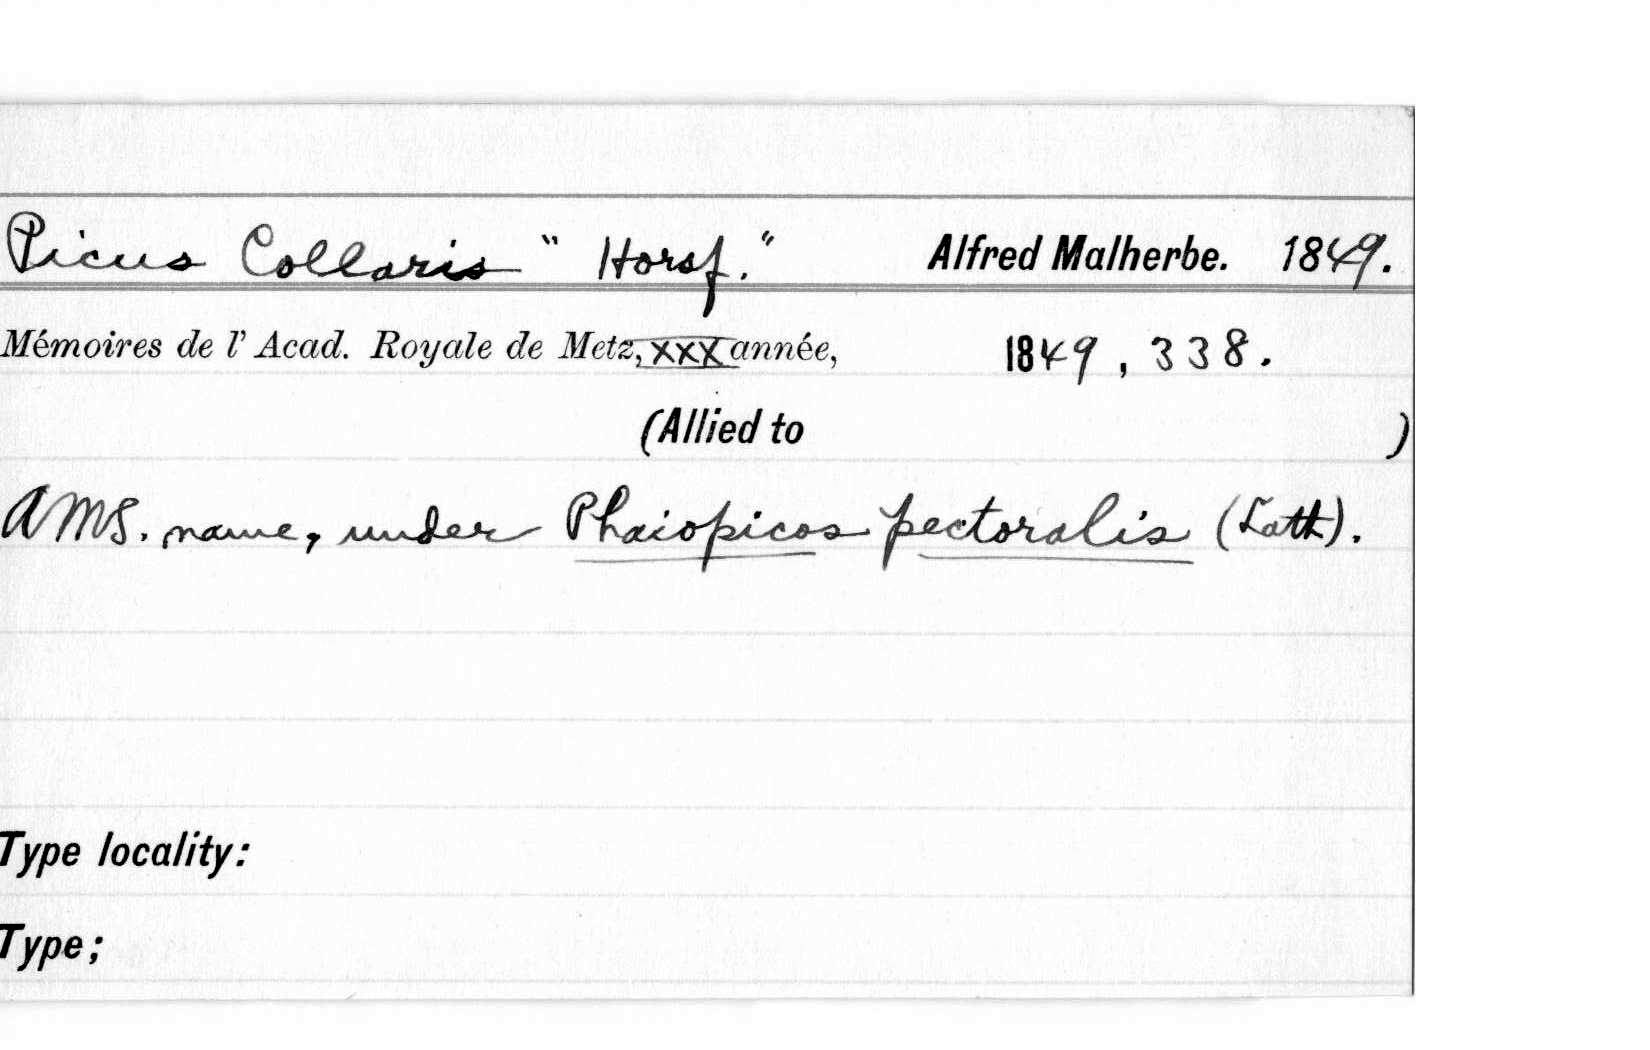 Picus Collaris " Horsf." Alfred Malherbe. 1849.
Mémoires de l' Acad. Royale de Metz, XXX année, 1849, 338.
(Allied to )
A MS. name, under Phaiopicos pectoralis (Lath).
Type locality:
Type;